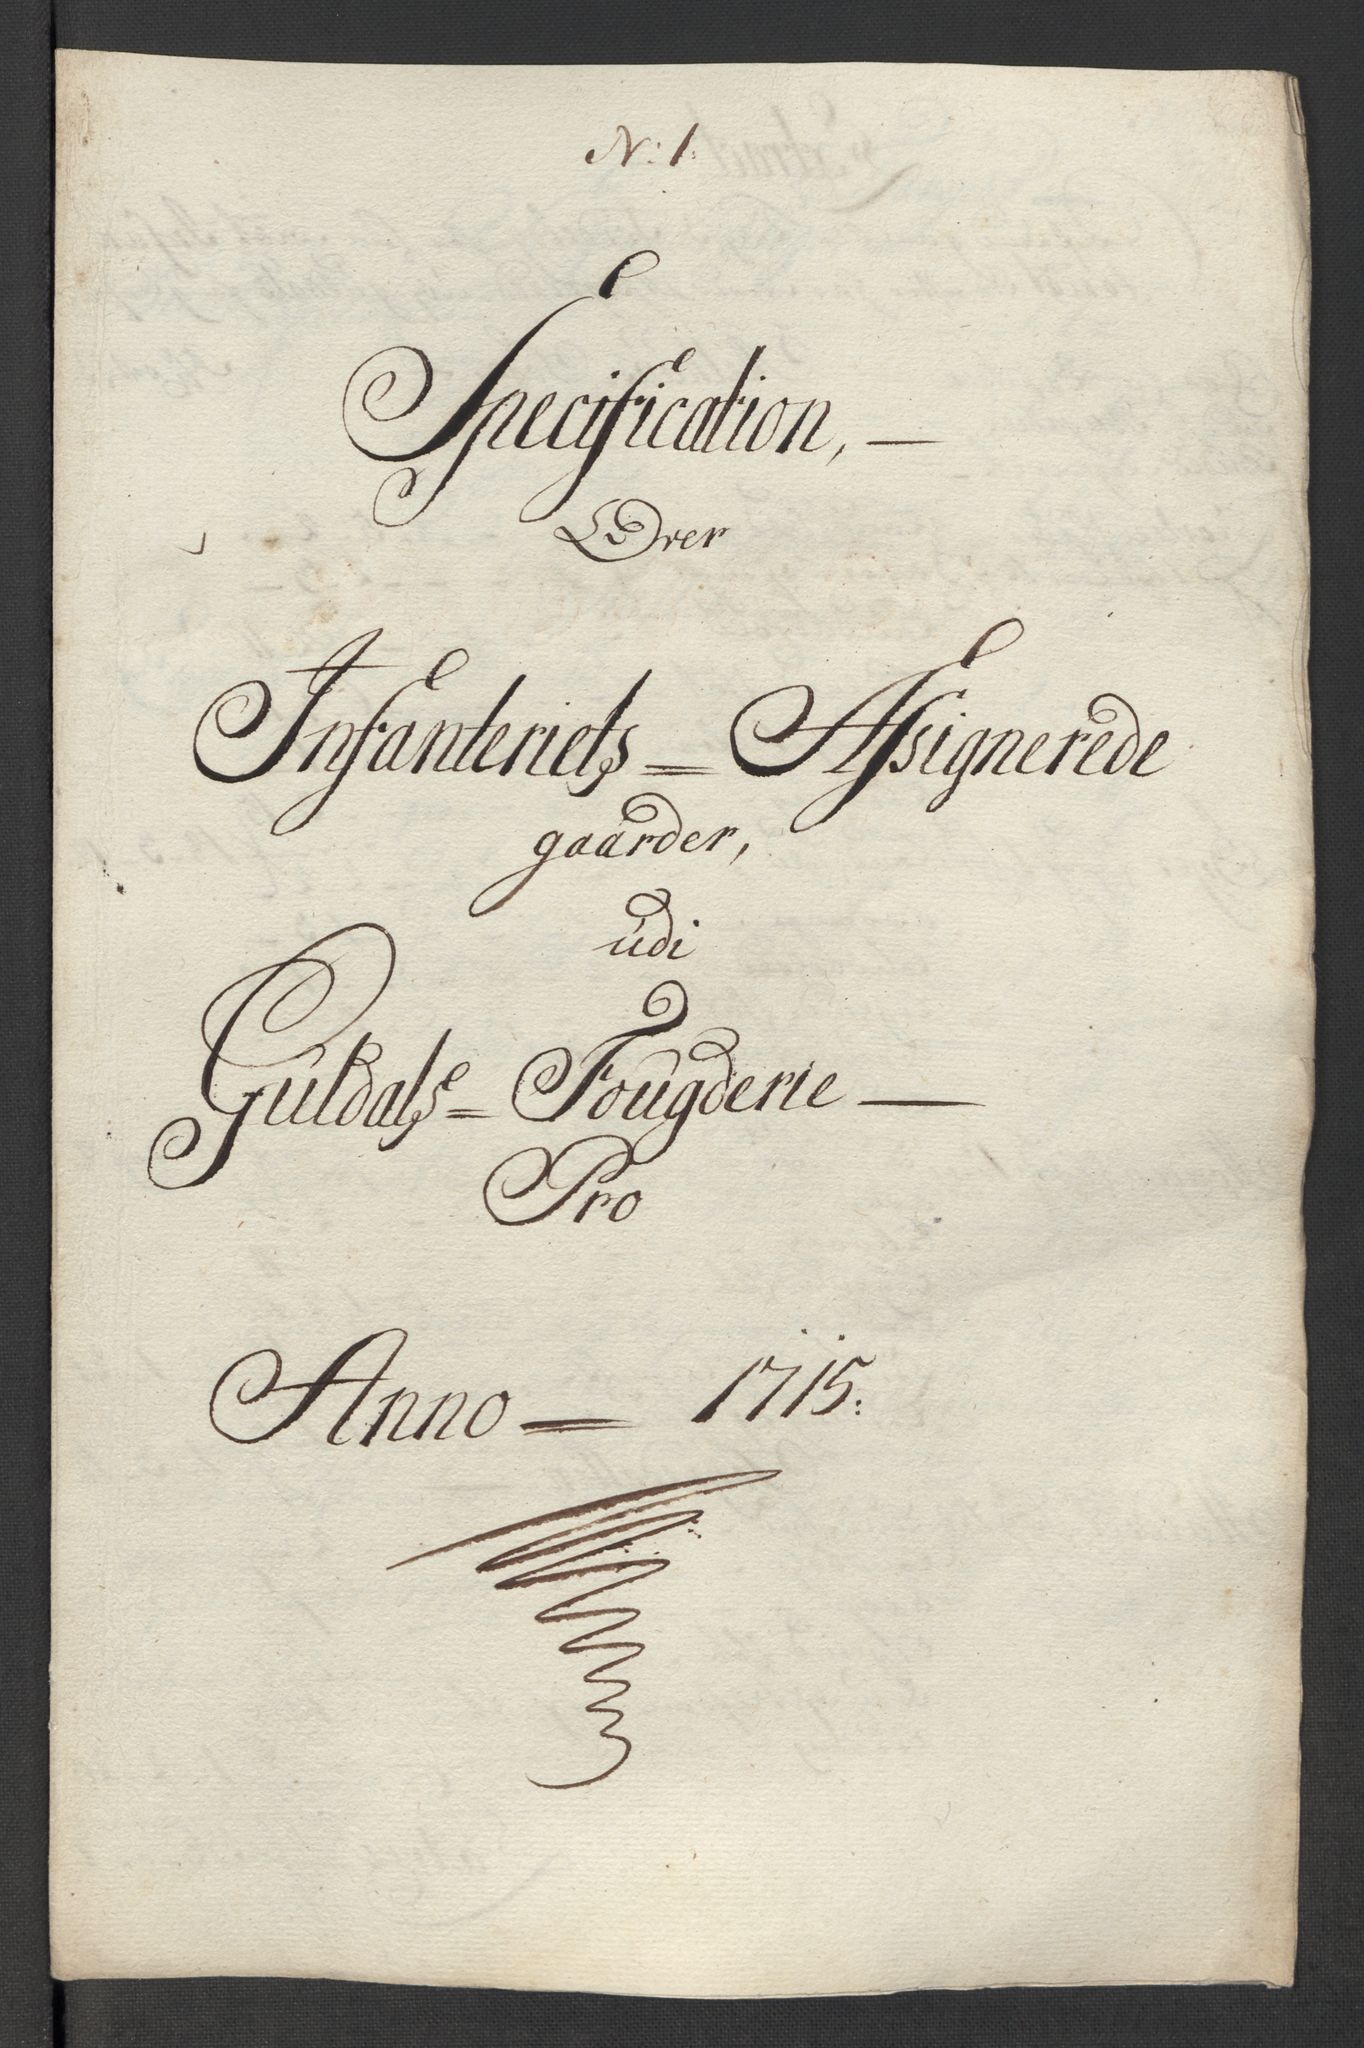 N: 1.
Specification, —
Over
Infanteriets = Assignerede
gaarder,
udi
Guldals = Fougderie —
Pro
Anno = 1715.